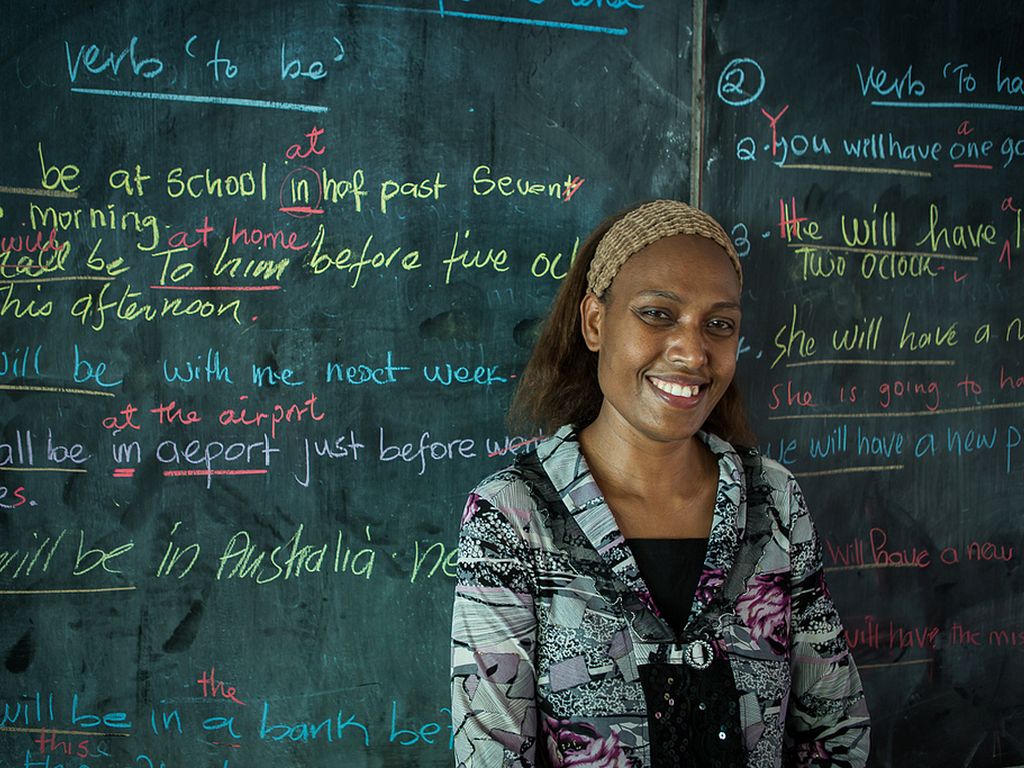 verb 'to be'
at
be at school in haf past Seven
morning
at home
be To him before five
this afternoon.
will be with me next week.
at the airport
all be in aeport just before
will be in Australia
the
will be in a bank
this
②
verb 'To
a
2. You will have one
a
3. He will have
Two O'clock
she will have a
she is going to
we will have a new
will have a new
will have the